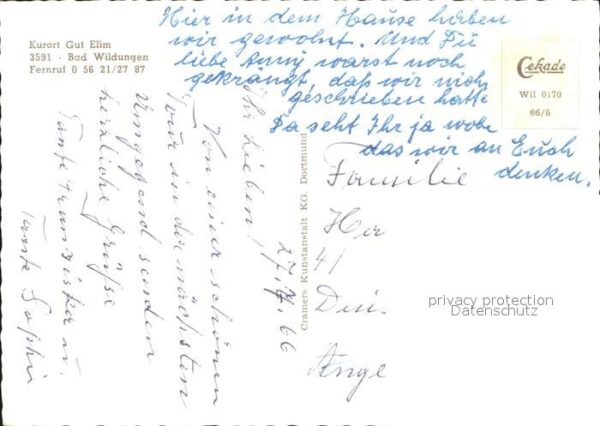 Kurort Gut Elim
3591 - Bad Wildungen
Fernruf 0 56 21/27 87
Hier in dem Hause haben
wir gewohnt. Und Du
liebe Anny warst noch
gekränkt, daß wir nicht
geschrieben hatte
Da seht Ihr ja wohl
das wir an Euch
denken.
Cekade
Wil 0170
66/5
27.7.66
Ihr Lieben!
Von einer schönen
Tour in der nächsten
Umgegend senden
herzliche Grüße
Tante Franziska u.
Tante Sophie
Cramers Kunstanstalt KG. Dortmund
Familie
Her
41
Dui
Ange
privacy protection
Datenschutz